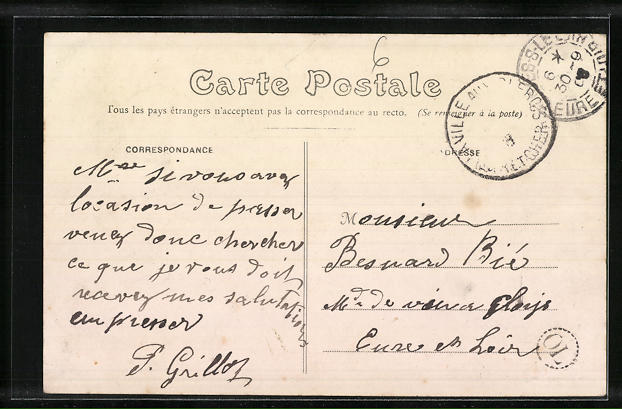 6
Carte Postale
Tous les pays étrangers n'acceptent pas la correspondance au recto. (Se renseigner à la poste)
CORRESPONDANCE
Mr si vous avez
locasion de passer
venez donc chercher
ce que je vous doit
recevez mes salutations
empresser
P. Grillot
ADRESSE
Monsieur
Besnard Bié
Md de vin a
Eure et Loir
LA VILLE AUX CLERCS
LOIR ET CHER
EURE
OL